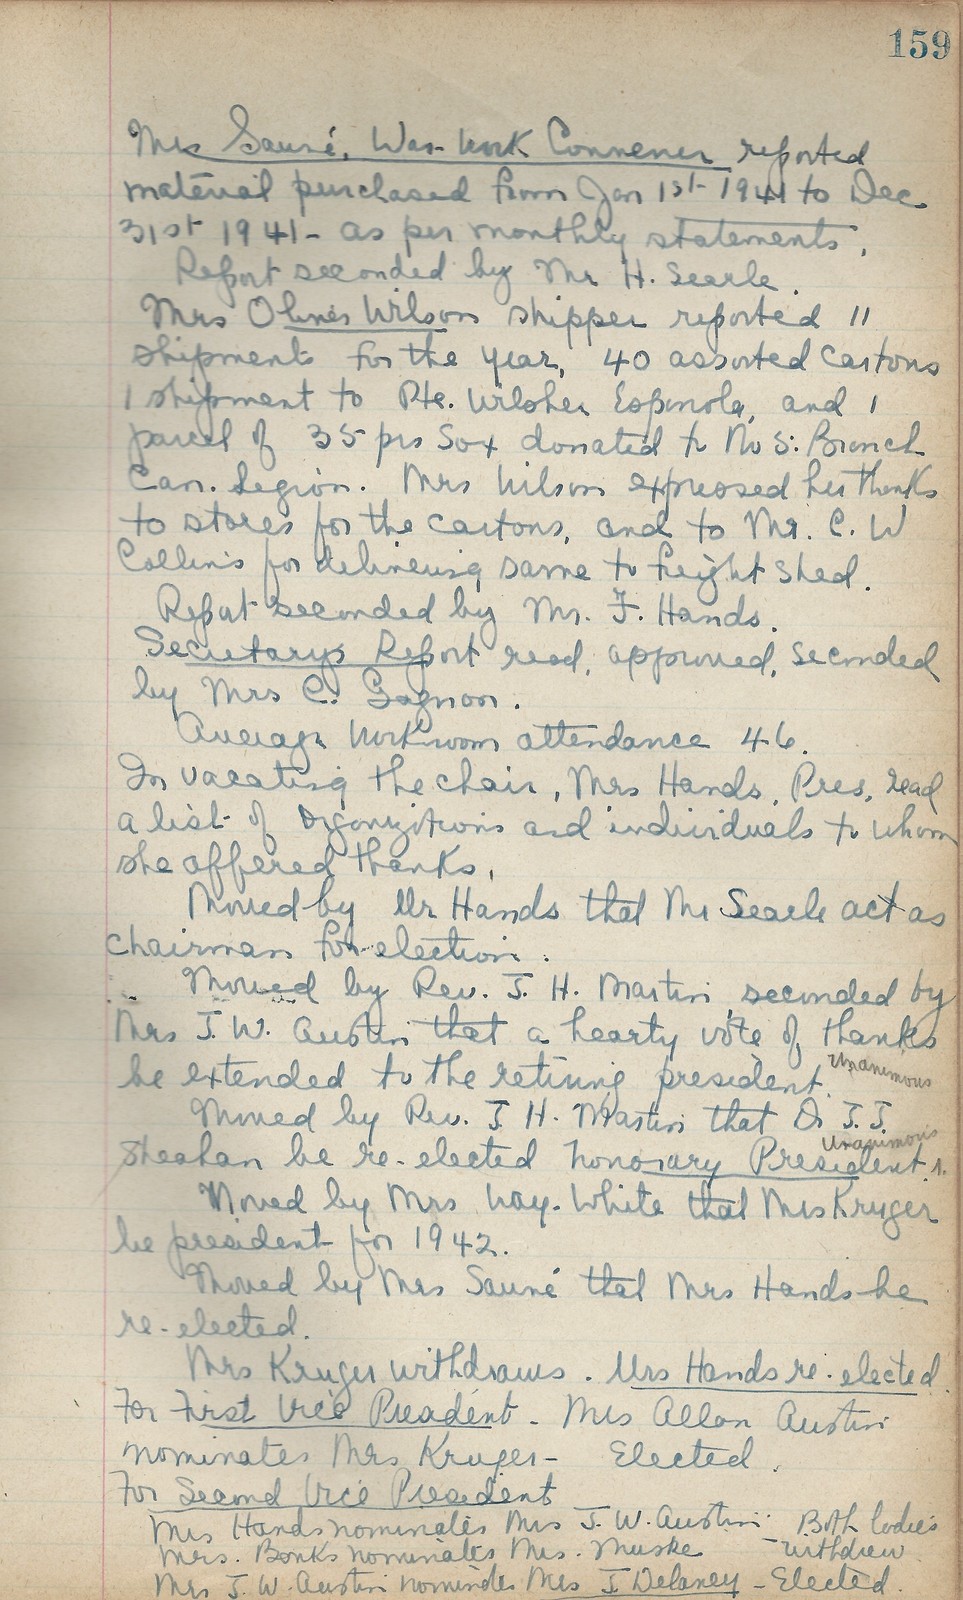 159
Mrs Sauvé, War-Work Convener reported
material purchased from Jan 1st 1941 to Dec
31st 1941 - as per monthly statements.
Report seconded by Mr H. Searle.
Mrs Wilson shipper reported 11
shipments for the year, 40 assorted cartons
1 shipment to Pte. Espinola, and 1
parcel of 35 prs Sox donated to Branch
Can. Legion. Mrs Wilson expressed her thanks
to stores for the cartons, and to Mr. C. W
Collins for delivering same to freight shed.
Report seconded by Mr. F. Hands.
Secretarys Report read, approved, seconded
by Mrs C. Gagnon.
Average workroom attendance 46.
In vacating the chair, Mrs Hands, Pres, read
a list of organizations and individuals to whom
she offered thanks.
Moved by Mr Hands that Mr Searle act as
chairman for election.
Moved by Rev. J. H. Martin seconded by
Mrs J. W. Austin that a hearty vote of thanks
be extended to the retiring president. Unanimous
Moved by Rev. J. H. Martin that Dr J. J.
Sheahan be re-elected honorary President. Unanimous
Moved by Mrs Way-White that Mrs Kruger
be president for 1942.
Moved by Mrs Sauvé that Mrs Hands be
re-elected.
Mrs Kruger withdraws. Mrs Hands re-elected.
For First Vice President - Mrs Allan Austin
nominates Mrs Kruger - Elected.
For Second Vice President
Mrs Hands nominates Mrs J. W. Austin - Both ladies
Mrs. Banks nominates Mrs. Muske - withdrew
Mrs J. W. Austin nominates Mrs J Delaney - Elected.